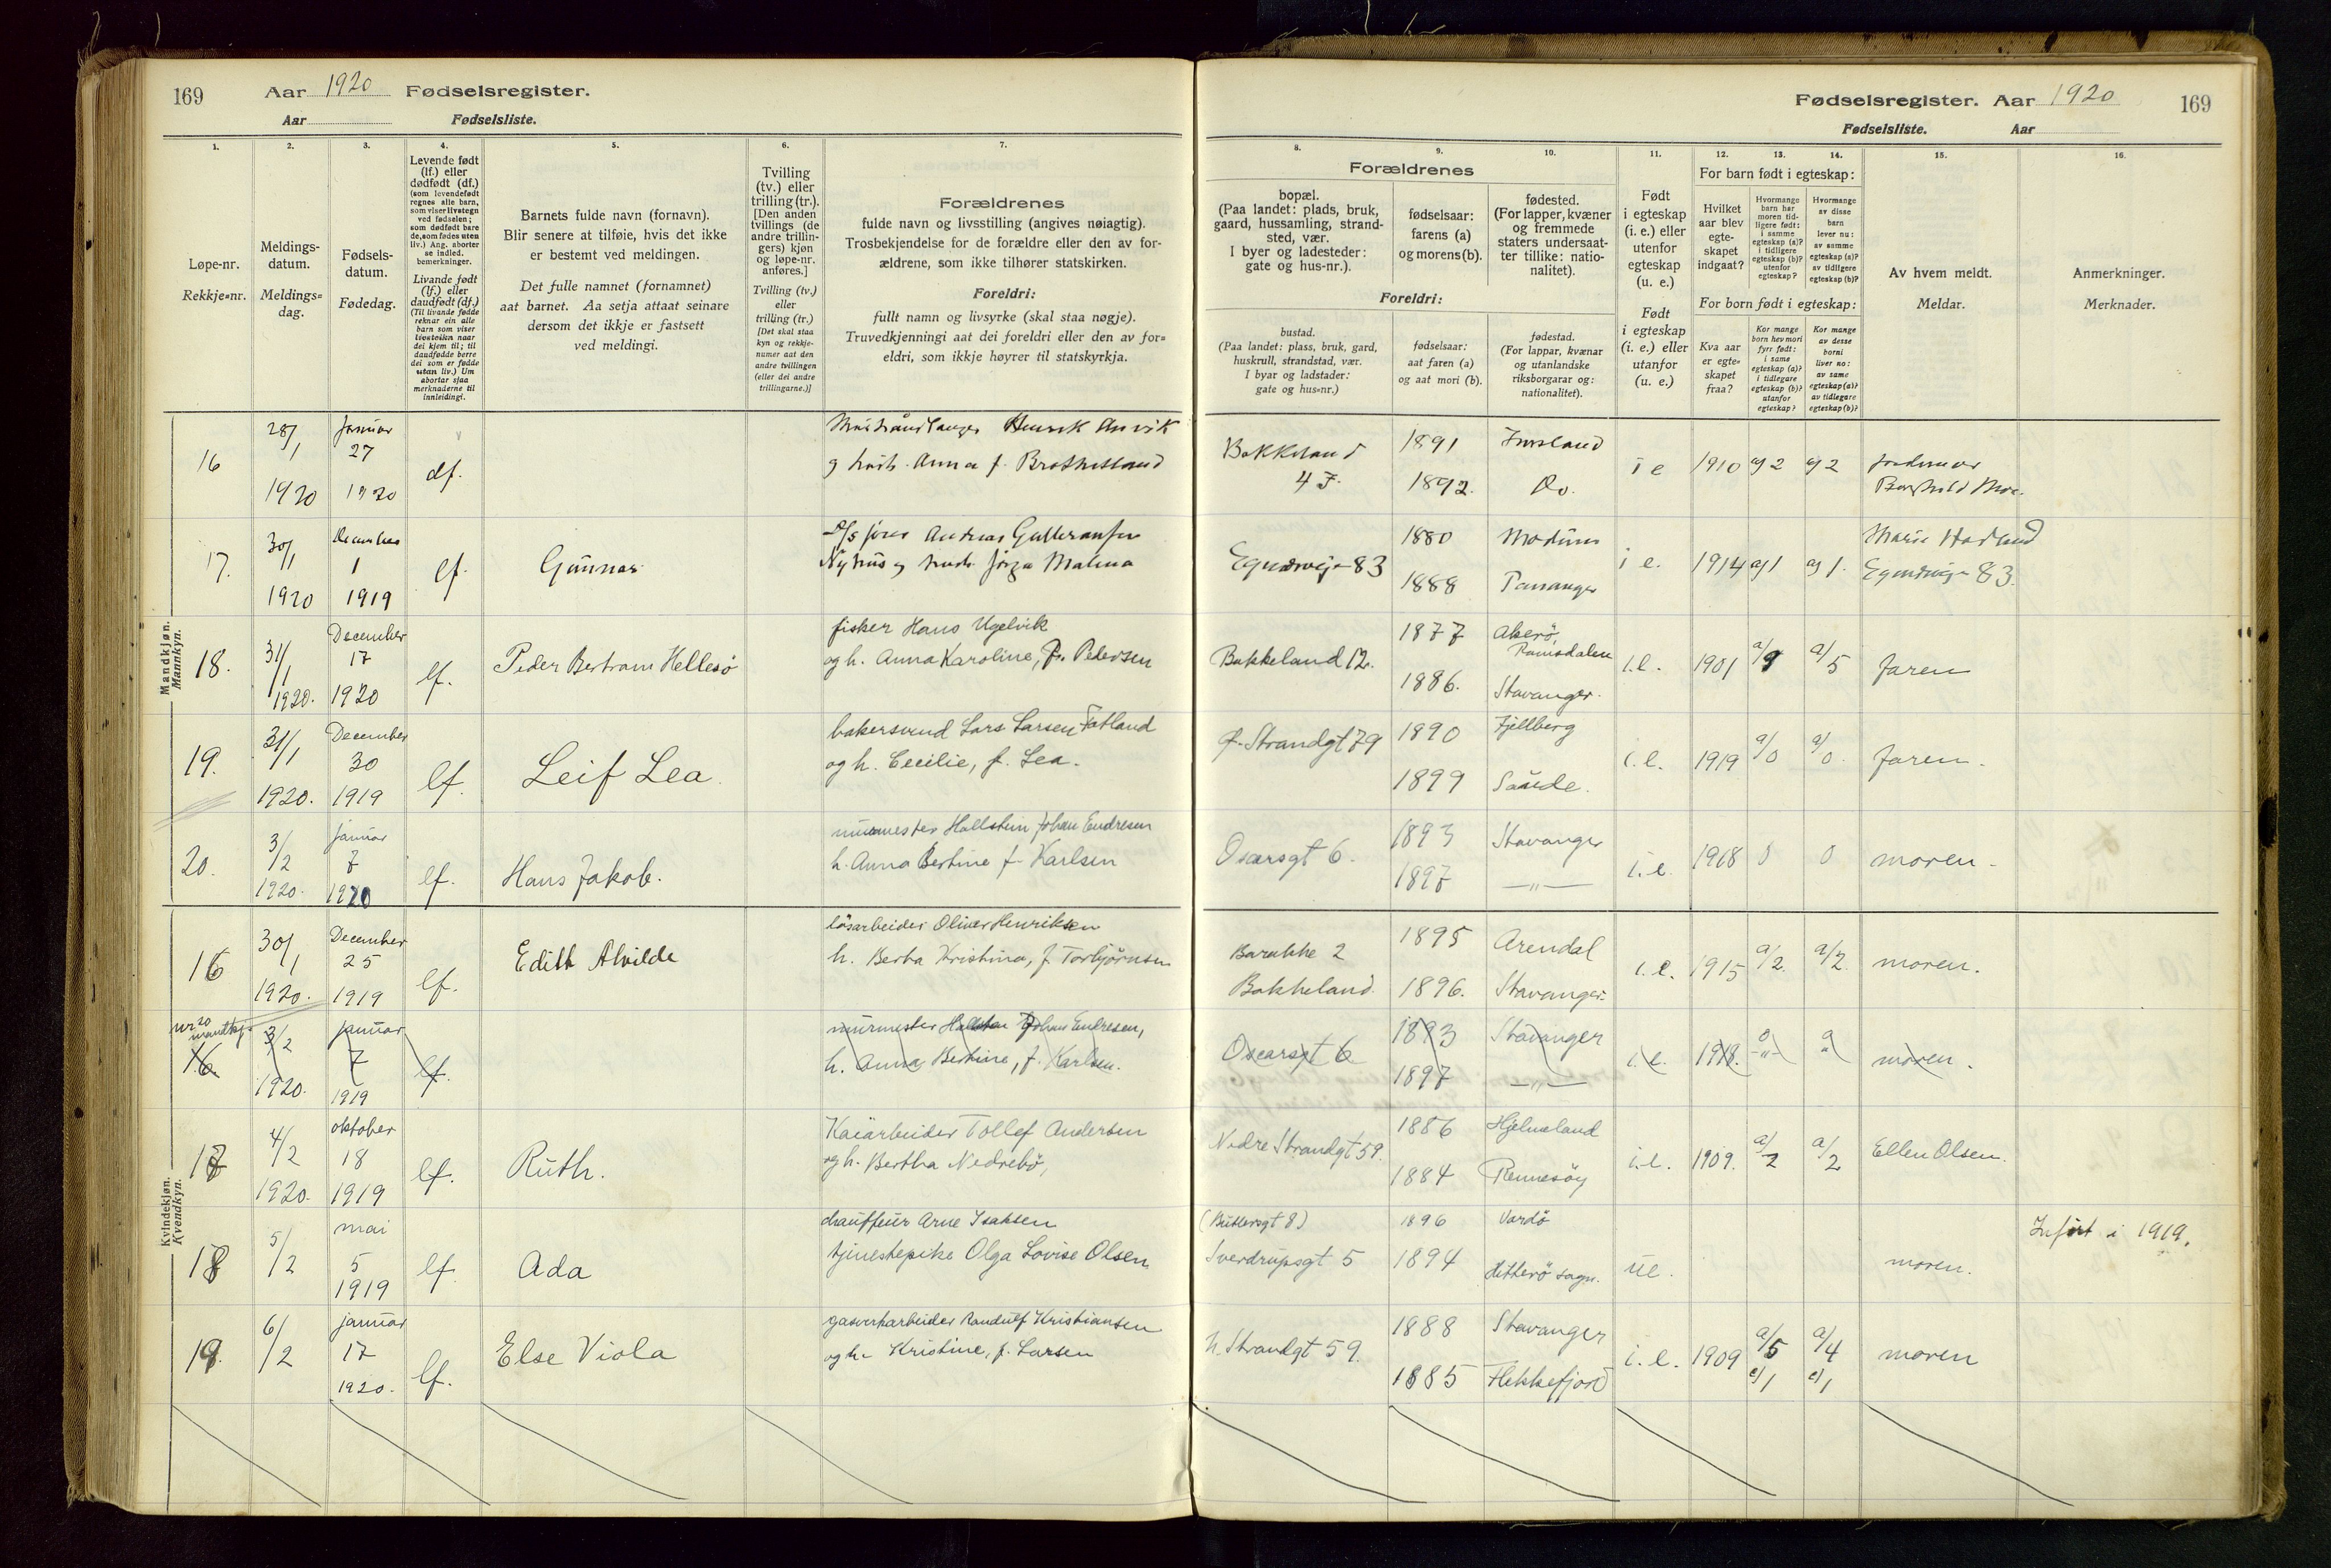 169 Aar 1920 Fødselsregister.
Aar Fødselsliste.
Fødselsregister. Aar 1920 169
Fødselsliste. Aar
1.
Løpe-nr.
Rekkje=nr.
2.
Meldings-
datum.
Meldings=
dag.
3.
Fødsels-
datum.
Fødedag.
4.
Levende født
(lf.) eller
dødfødt (df.)
(som levendefødt
regnes alle barn,
som viser livstegn
ved fødselen;
som dødfødt bare
de, som fødes uten
liv.) Ang. aborter
se indled.
bemerkninger.
Livande født
(lf.) eller
daudfødt (df.)
(Til livande fødde
reknar ein alle
barn som viser
livsteikn naar
dei kjem til; til
daudfødde berre
dei som er fødde
utan liv.) Um
abortar sjaa
merknaderne til
innleidingi.
5.
Barnets fulde navn (fornavn).
Blir senere at tilføie, hvis det ikke
er bestemt ved meldingen.
Det fulle namnet (fornamnet)
aat barnet. Aa setja attaat seinare
dersom det ikkje er fastsett
ved meldingi.
6.
Tvilling
(tv.) eller
trilling (tr.).
[Den anden
tvillings (de
andre trillin-
gers) kjøn
og løpe-nr.
anføres.]
Tvilling (tv.)
eller
trilling (tr.)
[Det skal staa
kyn og rekkje-
numer aat den
andre tvillingen
(eller dei andre
trillingarne.)]
7.
Forældrenes
fulde navn og livsstilling (angives nøiagtig).
Trosbekjendelse for de forældre eller den av for-
ældrene, som ikke tilhører statskirken.
Foreldri:
fullt namn og livsyrke (skal staa nøgje).
Truvedkjenningi aat dei foreldri eller den av for=
eldri, som ikkje høyrer til statskyrkja.
Forældrenes
8.
bopæl.
(Paa landet: plads, bruk,
gaard, hussamling, strand-
sted, vær.
I byer og ladesteder:
gate og hus-nr.).
9.
fødselsaar:
farens (a)
og morens (b).
10.
fødested.
(For lapper, kvæner
og fremmede
staters undersaat-
ter tillike: natio-
nalitet).
Foreldri:
bustad.
(Paa landet: plass, bruk, gard,
huskrull, strandstad, vær.
I byar og ladstader:
gate og hus=nr.)
fødselsaar:
aat faren (a)
og aat mori (b).
fødestad.
(For lappar, kvænar
og utanlandske
riksborgarar og:
nationalitet).
11.
Født
i egteskap
(i. e.) eller
utenfor
egteskap
(u. e.)
Født
i egteskap
(i. e.) eller
utanfor
(u. e.)
12. 13. 14.
For barn født i egteskap:
Hvilket
aar blev
egte-
skapet
indgaat?
Hvormange
barn har
moren tid-
ligere født:
i samme
egteskap (a)?
i tidligere
egteskap (b)?
utenfor
egteskap?
Hvormange
av disse
barn
lever nu:
av samme
egteskap (a)?
av tidligere
egteskap (b)?
For born født i egteskap:
Kva aar
er egte=
skapet
fraa?
Kor mange
born hev mori
fyrr født:
i same
egteskap (a)?
i tidlegare
egteskap (b)?
utanfor
egteskap?
Kor mange
av desse
borni
liver no:
av same
egteskap (a)?
av tidlegare
egteskap (b)?
15.
Av hvem meldt.
Meldar.
16.
Anmerkninger.
Merknader.
Mandkjøn.
Mannkyn.
16 28/1 1920 januar 27 1920 df.
Henrik Anvik
og hustr. Anna f.
Bakkeland 4 1891 1892 Do. i e 1910 a) 2 a) 2
17. 30/1 1920 December 1 1919 lf. Gunnar
Andreas
83 1880 1888 Modum i e. 1914 a) 1 a) 1.
83.
18. 31/1 1920. December 17 1920 lf. Peder Bertram Hellesö
fisker Hans Ugelvik
og h. Anna Karoline, f. Pedersen
Bakkeland 12. 1877 1886. Akerö, Romsdalen Stavanger. i.e. 1901 a/9 a/5 faren
19. 31/1 1920. December 30 1919 lf. Leif Lea
bakersvend Lars Larsen Fatland
og h. Cecilie, f. Lea.
Ø. Strandgt 79 1890 1899 Fjellberg Saude. i.e. 1919 a/0 a/0. faren.
20. 3/2 1920. januar 7 1920 lf. Hans Jakob.
murmester Hallstein Johan Endresen
h. Anna Bertine f. Karlsen
Oscarsgt 6. 1893 1897 Stavanger —"— i.e. 1918 0 0 moren.
Kvindekjøn.
Kvendkyn.
16 30/1 1920. December 25 1919 lf. Edith Alvilde
løsarbeider Oliver Henriksen
h. Berta Kristina, f. Torbjørnsen
Barakke 2
Bakkeland. 1895 1896. Arendal Stavanger. i.e. 1915 a/2. a/2. moren.
nr 20
mandkj.
16. 3/2 1920. januar 7 1919 lf.
murmester Hallstein Johan Endresen,
h. Anna Bertine, f. Karlsen.
Oscarsgt 6 1893 1897 Stavanger —"— i.e. 1918. moren.
17 4/2 1920. oktober 18 1919 lf. Ruth.
Kaiarbeider Tollef Andersen
og h. Bertha Nedrebö,
Nedre Strandgt 59. 1886 1884 Hjelmeland Rennesöy i.e. 1909. a/2 a/2 Ellen Olsen.
18 5/2 mai 5 1919 lf. Ada
chauffeur Arne Isaksen
tjenestepike Olga Lovise Olsen
Sverdrupsgt 5 1896 1894 Vardö Hitterö sogn. ue. moren. Inført i 1919.
19. 6/2 januar 17 1920. lf. Else Viola
gasverkarbeider Randulf Kristiansen
og h. Kristine, f. Larsen
N. Strandgt 59. 1888 1885 Stavanger Flekkefjord i.e. 1909 a/5 a/4 moren